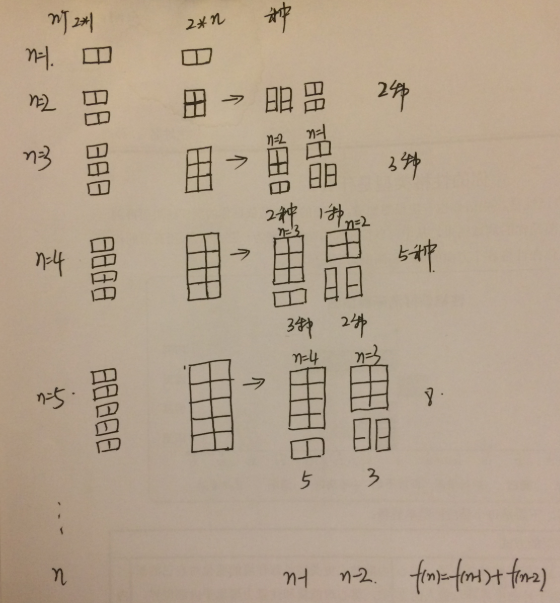 n个 2*1 2*n 一种
n=1.
n=2 → 2种
n=3 → n=2 n=1 3种
2种 1种
n=4 → n=3 n=2 5种.
3种 2种
n=5. → n=4 n=3 8.
5 3
⋮
n n-1 n-2. f(n)=f(n-1)+f(n-2)